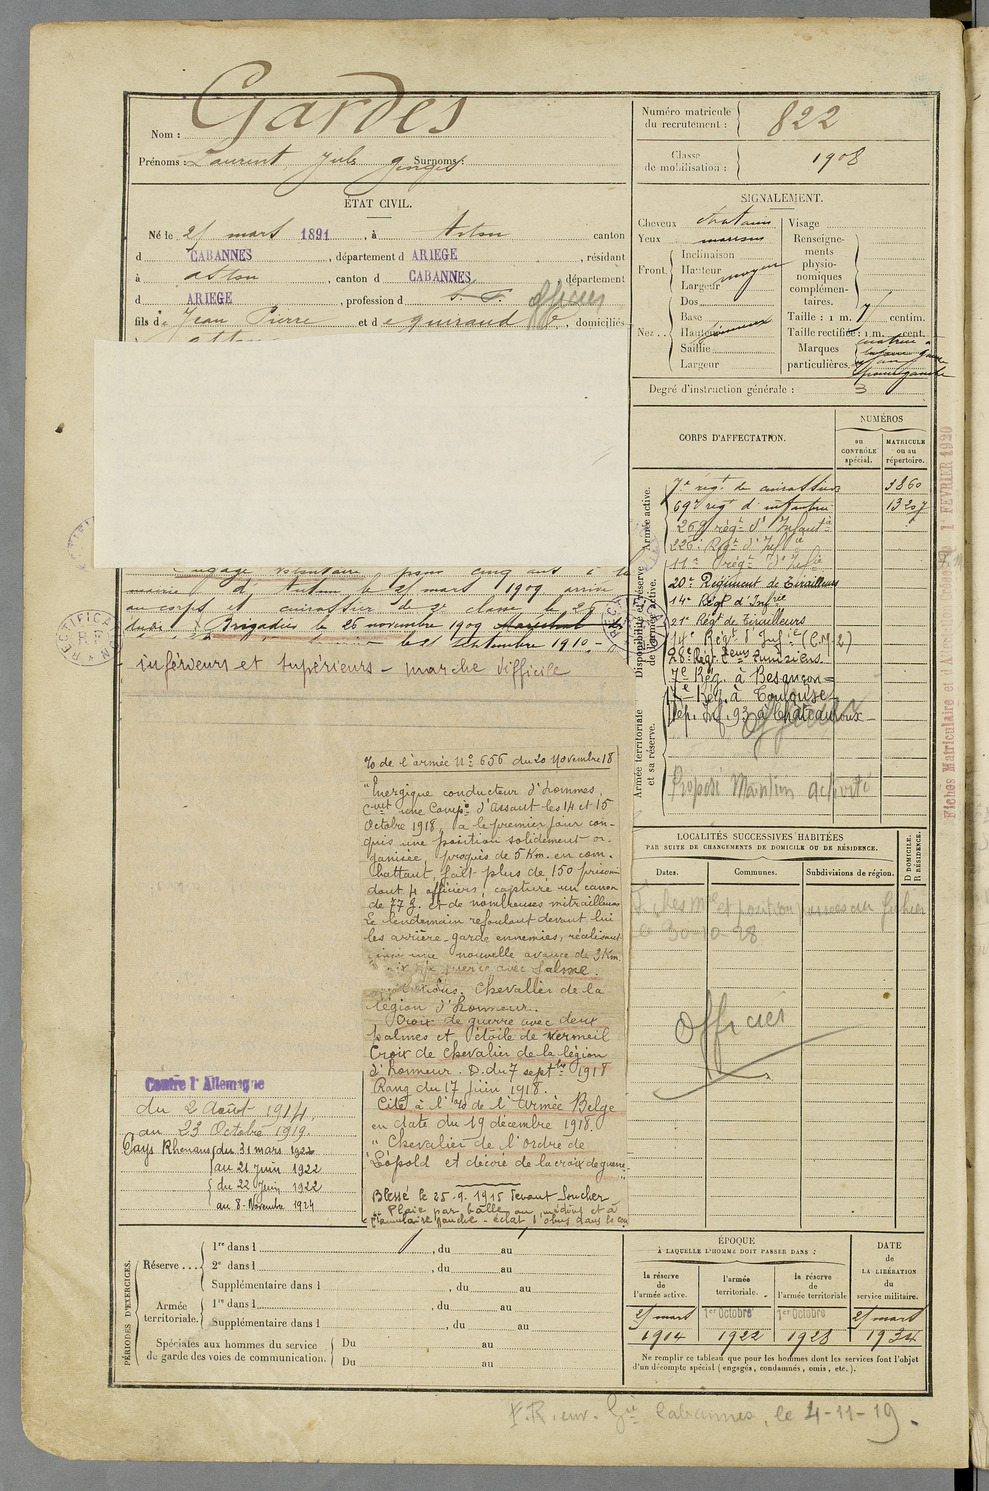 Gardes
Nom :
Prénoms : Laurent Jules Georges Surnoms :
ÉTAT CIVIL.
Né le 25 mars 1891, à Aston canton
d CABANNES, département d ARIEGE, résidant
à Aston, canton d CABANNES, département
d ARIEGE, profession d officier
fils de Jean Pierre et de guiraud, domiciliés
engagé volontaire pour cinq ans à la
mairie d'Autun le 25 mars 1909 arrivé
au corps et cuirassier de 2e classe le 26
dudit Brigadier le 26 novembre 1909
le 21 septembre 1910
inférieurs et supérieurs - marche difficile
% de l'armée No 656 du 20 Novembre 18
"Énergique conducteur d'hommes,
Ct une Compie d'assaut les 14 et 15
Octobre 1918, a le premier jour con-
quis une position solidement or-
ganisée, progressé de 5 Km. en com-
battant, fait plus de 150 prison
dont 4 officiers, capturé un canon
de 77 et de nombreuses mitrailleuses
Le lendemain refoulant devant lui
les arrière-garde ennemies, réalisant
ainsi une nouvelle avance de 3 Km.
guerre avec Palme.
Chevalier de la
légion d'honneur.
Croix de guerre avec deux
palmes et étoile de vermeil
Croix de Chevalier de la légion
d'honneur. D. du 7 septbre 1918
Rang du 17 Juin 1918.
Cité à l'% de l'Armée Belge
en date du 19 décembre 1918.
" Chevalier de l'ordre de
Léopold et décoré de la croix de guerre"
Blessé le 25-9-1915 devant Souchez
Plaie par balle au médius et à
l'annulaire gauche - éclat d'obus dans le cou
Contre l'Allemagne
du 2 Août 1914
au 23 Octobre 1919.
Pays Rhénans du 31 mars 1922
au 21 Juin 1922
du 22 Juin 1922
au 8-Novembre 1924
PÉRIODES D'EXERCICES.
Réserve ... 1re dans l , du au
2e dans l , du au
Supplémentaire dans l , du au
Armée territoriale. 1re dans l , du au
Supplémentaire dans l , du au
Spéciales aux hommes du service de garde des voies de communication. Du au
Du au
Numéro matricule du recrutement : 822
Classe de mobilisation : 1908
SIGNALEMENT.
Cheveux chatains
Yeux marrons
Front. Inclinaison
Hauteur moyen
Largeur
Nez .. Dos
Base
Hauteur
Saillie
Largeur
Visage
Renseignements physionomiques complémentaires.
Taille : 1 m. centim.
Taille rectifiée : 1 m. cent.
Marques particulières.
Degré d'instruction générale : 3
CORPS D'AFFECTATION.
NUMÉROS
au CONTRÔLE spécial.
MATRICULE ou au répertoire.
Armée active.
Disponibilité et réserve de l'armée active.
Armée territoriale et sa réserve.
7e régt de cuirassiers 3860
69e régt d'infanterie 13207
269 régt d'Infanterie
226e Régt d'Infie
11e régt d'Infie
20e Régiment de Tirailleurs
14e Régt d'Infrie
21e Régt de Tirailleurs
14e Régt d'Infie (C.M.2)
28e Régt Teurs Tunisiens.
7e Rég. à Besançon
17e Rég. à Toulouse
Dép. Inf. 93 à Châteauroux
Officier
Proposé Maintien activité
LOCALITÉS SUCCESSIVES HABITÉES
PAR SUITE DE CHANGEMENTS DE DOMICILE OU DE RÉSIDENCE.
Dates. Communes. Subdivisions de région.
D DOMICILE. R RÉSIDENCE.
Fiches Mle et position mises au fichier
le 30-10-28
Officier
ÉPOQUE
À LAQUELLE L'HOMME DOIT PASSER DANS :
la réserve de l'armée active.
l'armée territoriale.
la réserve de l'armée territoriale
DATE de LA LIBÉRATION du service militaire.
25 mars 1914
1er Octobre 1922
1er Octobre 1928
25 mars 1934
Ne remplir ce tableau que pour les hommes dont les services font l'objet
d'un décompte spécial (engagés, condamnés, omis, etc.).
F.R. env. Gie Cabannes, le 4-11-19.
RECTIFICATION
R F
1er FÉVRIER 1920